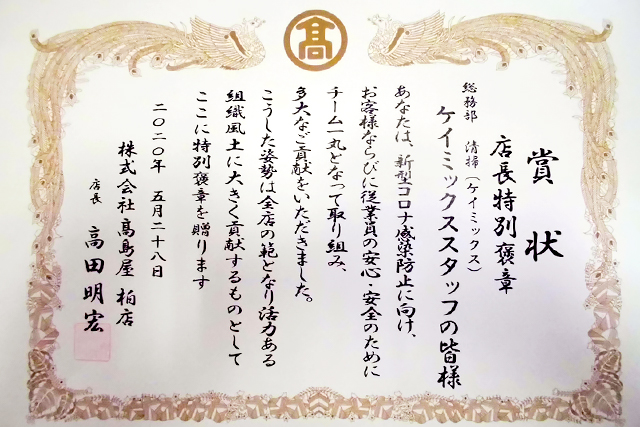 髙
賞状
店長特別褒章
総務部 清掃(ケイミックス)
ケイミックススタッフの皆様
あなたは、新型コロナ感染防止に向け、
お客様ならびに従業員の安心・安全のために
チーム一丸となって取り組み、
多大なご貢献をいただきました。
こうした姿勢は全店の範となり活力ある
組織風土に大きく貢献するものとして
ここに特別褒章を贈ります
二〇二〇年 五月二十八日
株式会社髙島屋 柏店
店長 高田明宏